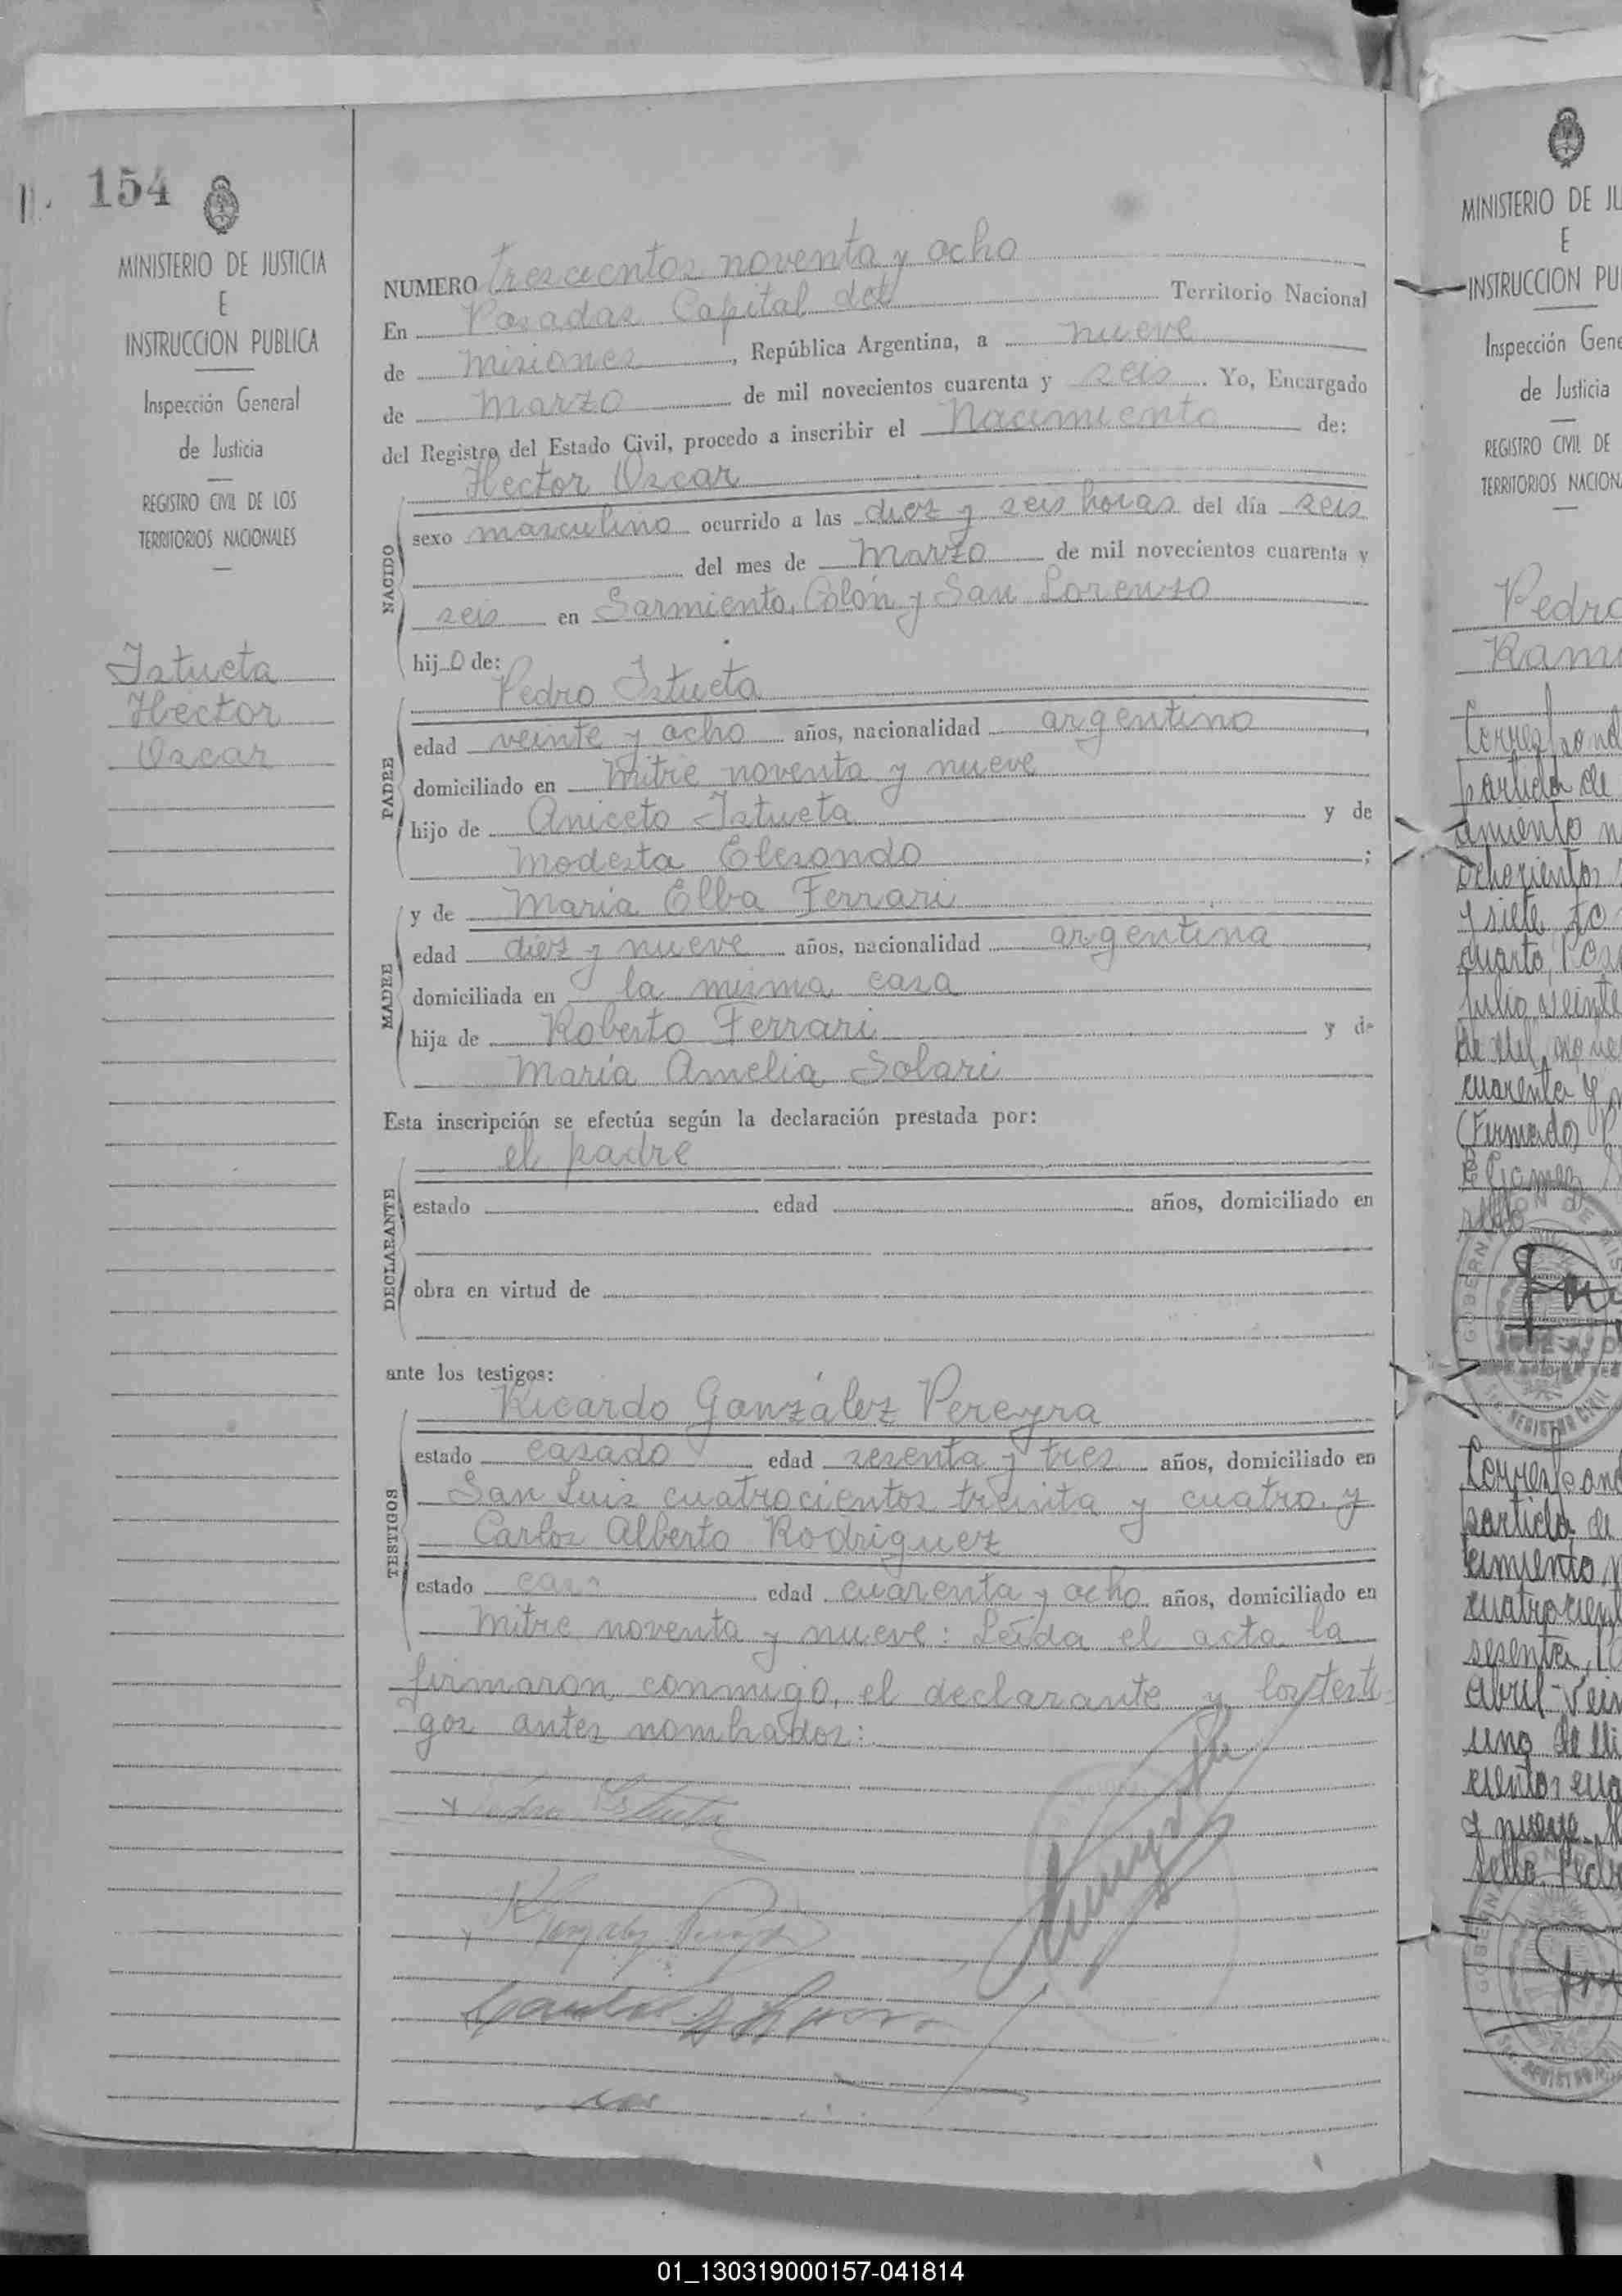 154
MINISTERIO DE JUSTICIA
E
INSTRUCCION PUBLICA
Inspección General
de Justicia
REGISTRO CIVIL DE LOS
TERRITORIOS NACIONALES
Istueta
Hector
Oscar
NUMERO trescientos noventa y ocho
En Posadas Capital del Territorio Nacional
de Misiones, República Argentina, a nueve
de Marzo de mil novecientos cuarenta y seis. Yo, Encargado
del Registro del Estado Civil, procedo a inscribir el Nacimiento de:
Hector Oscar
NACIDO
sexo masculino ocurrido a las diez y seis horas del día seis
del mes de Marzo de mil novecientos cuarenta y
seis en Sarmiento, Colón y San Lorenzo
hijo de:
Pedro Istueta
PADRE
edad veinte y ocho años, nacionalidad argentino,
domiciliado en Mitre noventa y nueve
hijo de Aniceto Istueta y de
Modesta Elesondo;
MADRE
y de María Elba Ferrari
edad diez y nueve años, nacionalidad argentina,
domiciliada en la misma casa
hija de Roberto Ferrari y de
María Amelia Solari
Esta inscripción se efectúa según la declaración prestada por:
el padre
DECLARANTE
estado edad años, domiciliado en
obra en virtud de
ante los testigos:
Ricardo González Pereyra
TESTIGOS
estado casado edad sesenta y tres años, domiciliado en
San Luis cuatrocientos treinta y cuatro y
Carlos Alberto Rodriguez
estado edad cuarenta y ocho años, domiciliado en
Mitre noventa y nueve: Leída el acta la
firmaron conmigo, el declarante y los testi-
gos antes nombrados:
Pedro Istueta
MINISTERIO DE JU
E
INSTRUCCION PU
Inspección Gene
de Justicia
REGISTRO CIVIL DE
TERRITORIOS NACION
Pedro
Ram
Correspond
partida de
amiento n
ochocientos
y siete
cuarto, Pos
Julio veinte
de mil nove
cuarenta y
(Firmado)
sello
Correspond
partida de
cimiento
cuatrocient
sesenta
Abril Vein
uno de Mi
cientos cua
y nueve
sello. Pedr
01_130319000157-041814